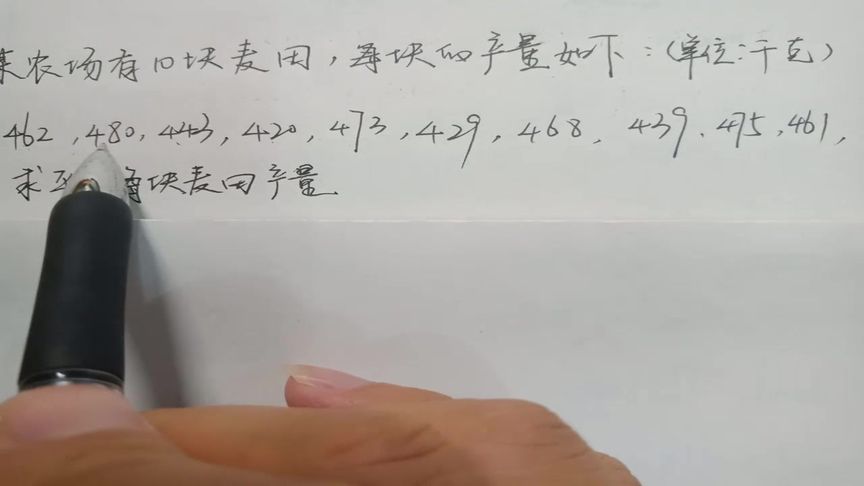 某农场有10块麦田，每块的产量如下：(单位：千克)
462，480，443，420，473，429，468、439、475，461，
求 每块麦田产量